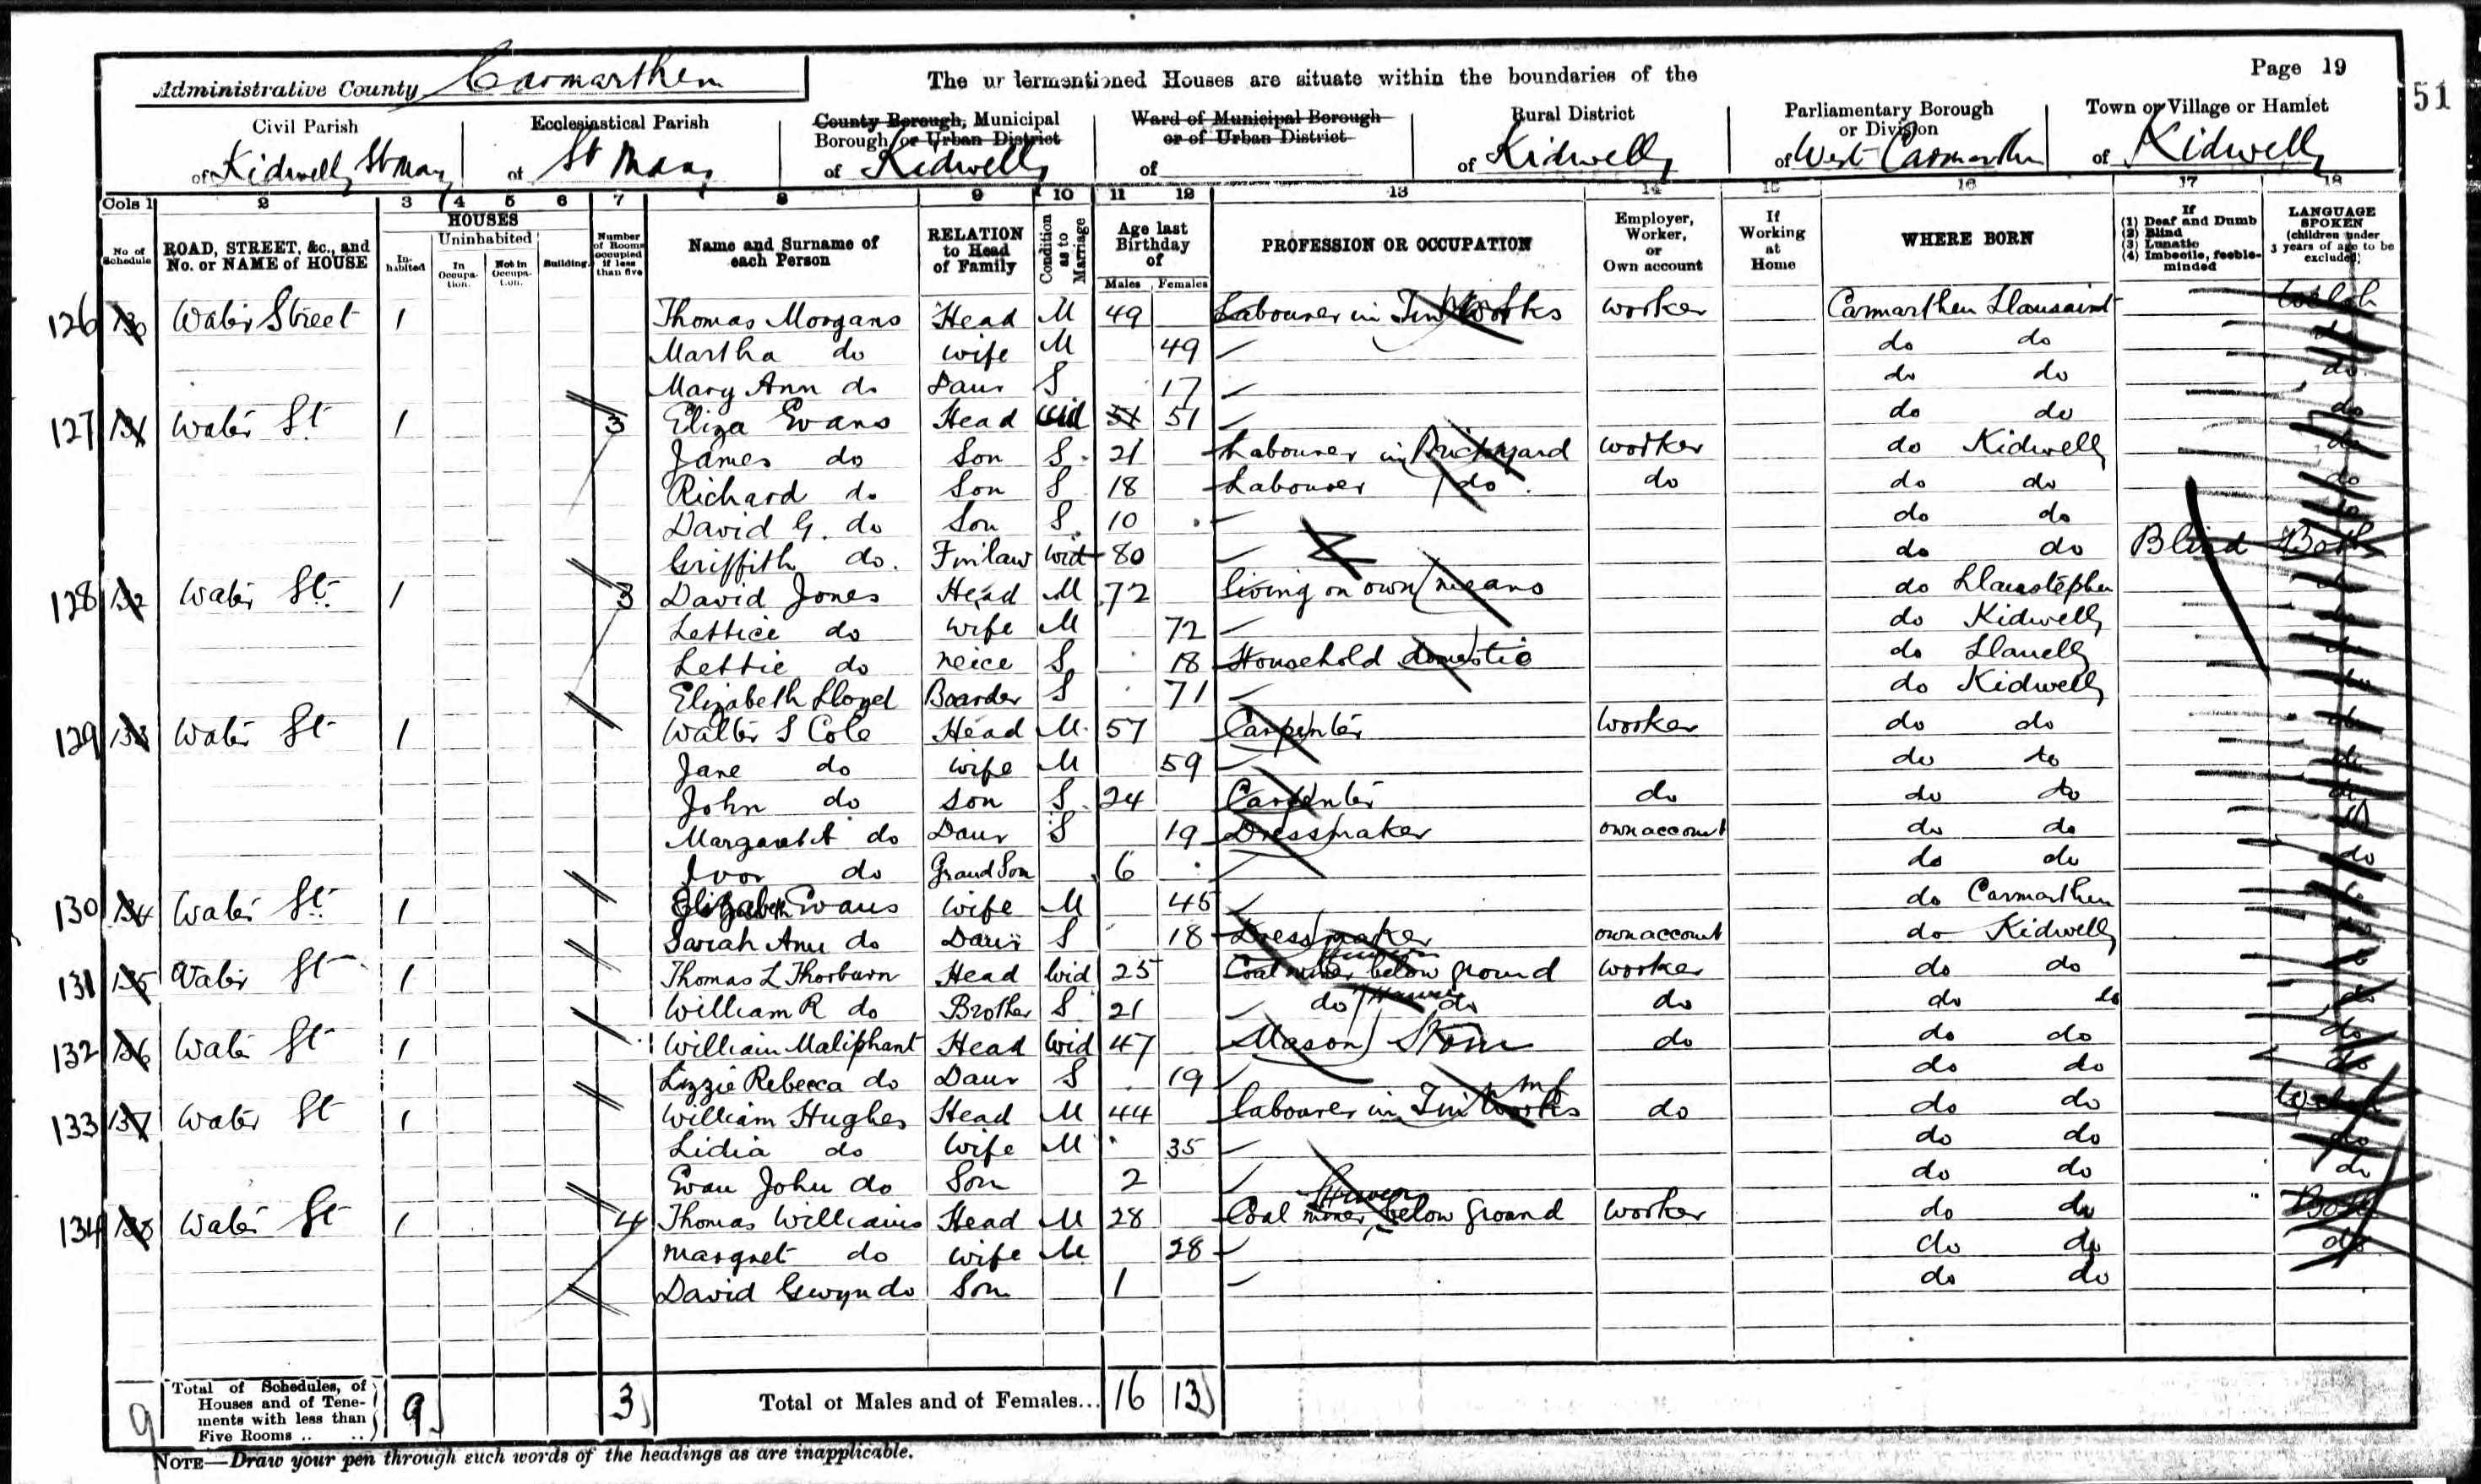 Page 19
51
Administrative County Carmarthen
The undermentioned Houses are situate within the boundaries of the
Civil Parish of Kidwelly St Mary
Ecclesiastical Parish of St Mary
County Borough, Municipal Borough or Urban District of Kidwelly
Ward of Municipal Borough or of Urban District of
Rural District of Kidwelly
Parliamentary Borough or Division of West Carmarthen
Town or Village or Hamlet of Kidwelly
Cols 1 2 3 4 5 6 7 8 9 10 11 12 13 14 15 16 17 18
No of Schedule
ROAD, STREET, &c., and No. or NAME of HOUSE
HOUSES
Inhabited
Uninhabited
In Occupation.
Not in Occupation.
Building.
Number of Rooms occupied if less than five
Name and Surname of each Person
RELATION to Head of Family
Condition as to Marriage
Age last Birthday of
Males Females
PROFESSION OR OCCUPATION
Employer, Worker, or Own account
If Working at Home
WHERE BORN
If (1) Deaf and Dumb (2) Blind (3) Lunatic (4) Imbecile, feeble-minded
LANGUAGE SPOKEN (children under 3 years of age to be excluded)
126 130 Water Street 1 Thomas Morgans Head M 49 Labourer in Tin Works worker Carmarthen Llansaint Welsh
Martha do wife M 49 do do do
Mary Ann do Daur S 17 do do do
127 131 Water St 1 3 Eliza Evans Head Wid 51 51 do do do
James do Son S 21 Labourer in Brickyard worker do Kidwelly do
Richard do Son S 18 Labourer do do do do do
David G. do Son S 10 do do do
Griffith do. F in law Wid 80 do do Blind Both
128 132 Water St. 1 3 David Jones Head M 72 living on own means do Llanstephen do
Lettice do wife M 72 do Kidwelly do
Lettie do neice S 18 Household domestic do Llanelly do
Elizabeth Lloyd Boarder S 71 do Kidwelly do
129 133 Water St 1 Walter S Cole Head M 57 Carpenter Worker do do do
Jane do wife M 59 do do do
John do son S 24 Carpenter do do do do
Margaret A do Daur S 19 Dressmaker own account do do do
Ivor do Grand Son 6 do do do
130 134 Water St. 1 Elizabeth Evans wife M 45 do Carmarthen do
Sarah Ann do Daur S 18 Dressmaker own account do Kidwelly do
131 135 Water St 1 Thomas L Thorburn Head Wid 25 Coal miner Hewer below ground worker do do do
William R do Brother S 21 do Hewer do do do do do
132 136 Water St 1 William Maliphant Head Wid 47 Mason Stone do do do do
Lizzie Rebecca do Daur S 19 do do do
133 137 Water St 1 William Hughes Head M 44 labourer in Tin Works do do do Welsh
Lidia do Wife M 35 do do do
Evan John do Son 2 do do do
134 138 Water St 1 4 Thomas Williams Head M 28 Coal miner Hewer below ground worker do do Both
Margret do wife M 28 do do do
David Gwyn do Son 1 do do
9 Total of Schedules, of Houses and of Tenements with less than Five Rooms .. .. 9 3 Total of Males and of Females... 16 13
NOTE—Draw your pen through such words of the headings as are inapplicable.